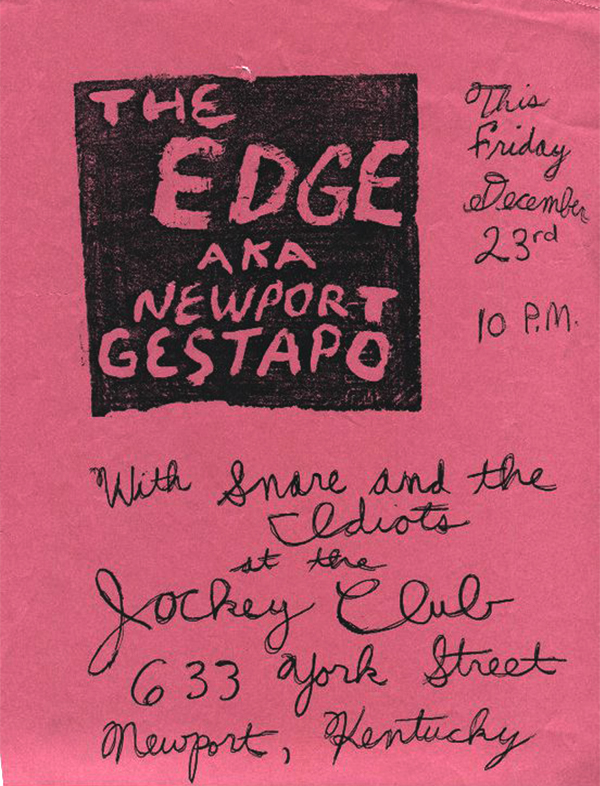 THE
EDGE
AKA
NEWPORT
GESTAPO
This
Friday
December
23rd
10 P.M.
With Snare and the
Idiots
at the
Jockey Club
633 York Street
Newport, Kentucky